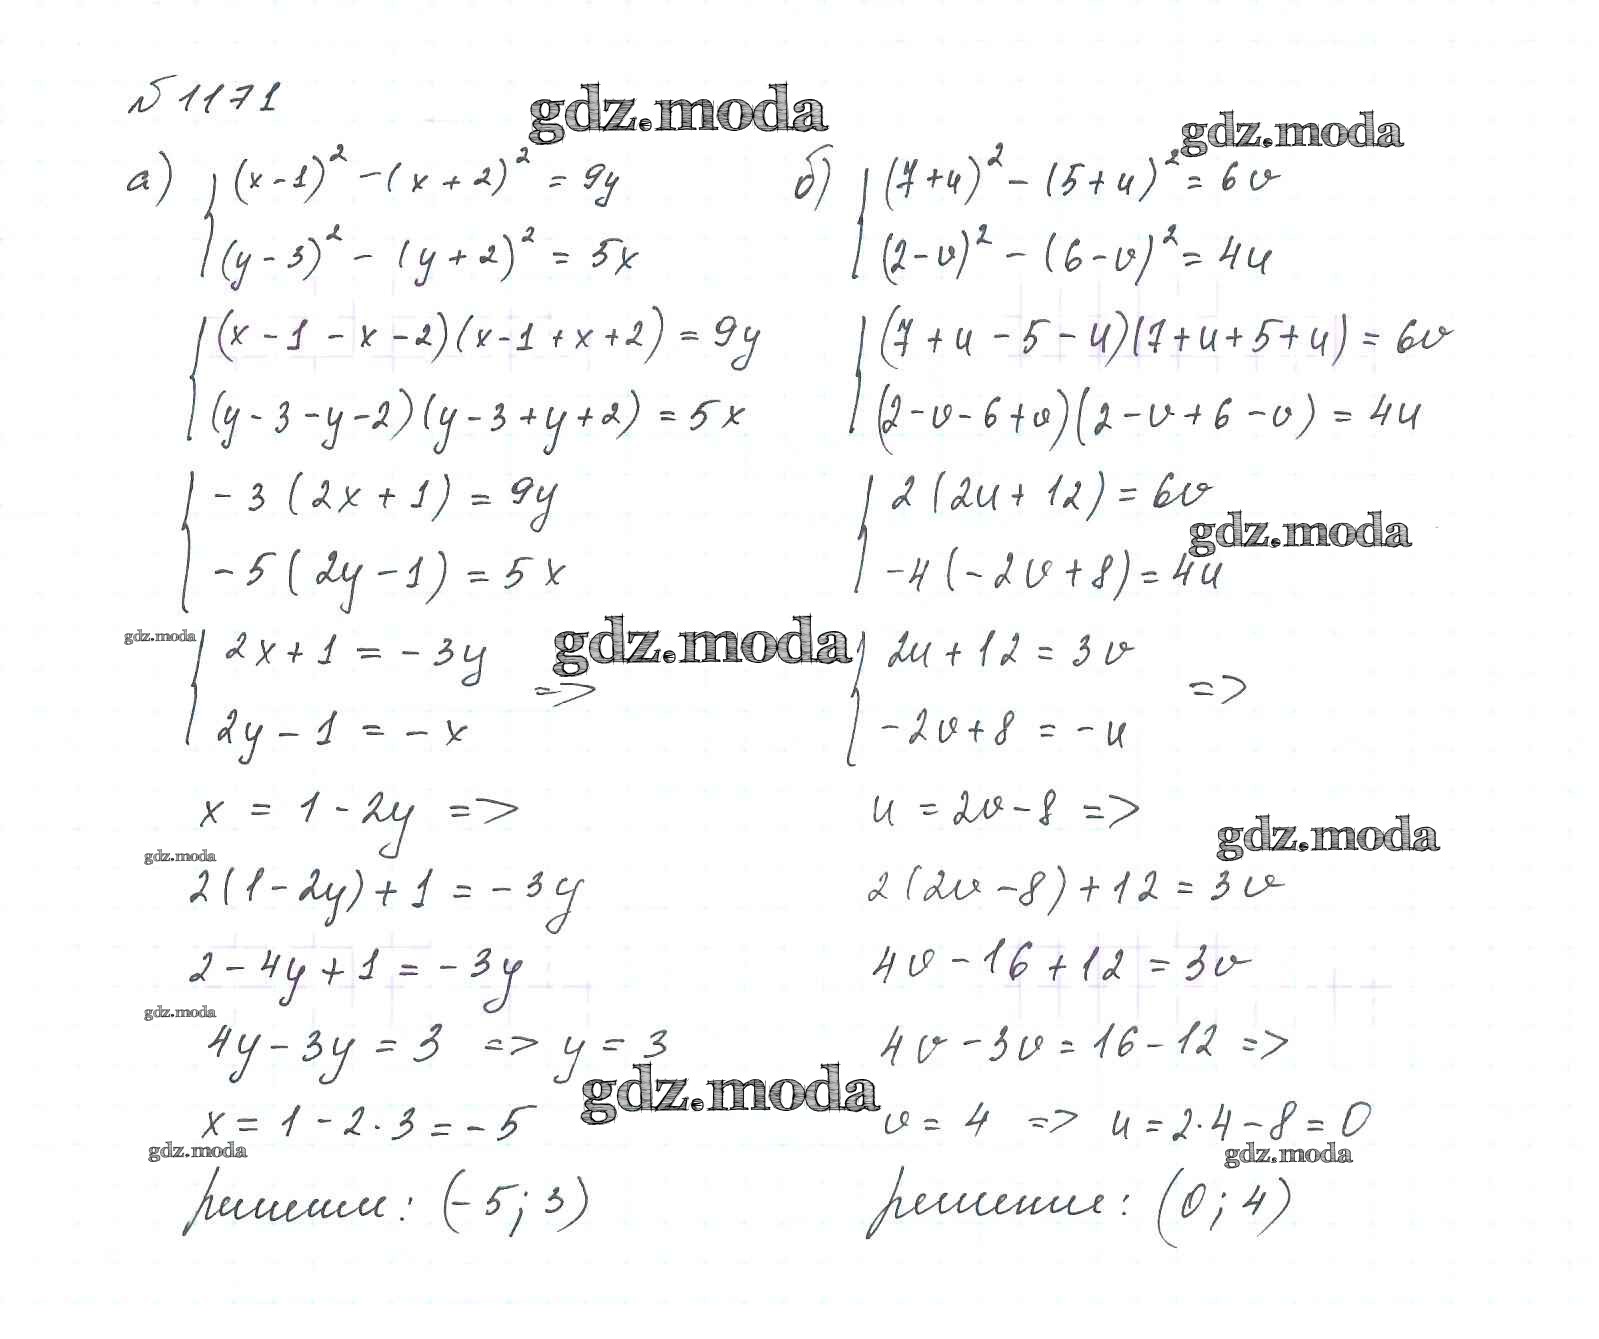 № 1171
gdz.moda
gdz.moda
а) (x-1)² - (x+2)² = 9y
(y-3)² - (y+2)² = 5x
(x-1-x-2)(x-1+x+2) = 9y
(y-3-y-2)(y-3+y+2) = 5x
-3(2x+1) = 9y
-5(2y-1) = 5x
gdz.moda
2x+1 = -3y
gdz.moda
=>
2y-1 = -x
x = 1-2y =>
gdz.moda
2(1-2y)+1 = -3y
2-4y+1 = -3y
gdz.moda
4y-3y = 3 => y = 3
gdz.moda
x = 1-2·3 = -5
gdz.moda
решение: (-5; 3)
б) (7+u)² - (5+u)² = 6v
(2-v)² - (6-v)² = 4u
(7+u-5-u)(7+u+5+u) = 6v
(2-v-6+v)(2-v+6-v) = 4u
2(2u+12) = 6v
gdz.moda
-4(-2v+8) = 4u
2u+12 = 3v
=>
-2v+8 = -u
u = 2v-8 =>
gdz.moda
2(2v-8)+12 = 3v
4v-16+12 = 3v
4v-3v = 16-12 =>
v = 4 => u = 2·4-8 = 0
gdz.moda
решение: (0; 4)